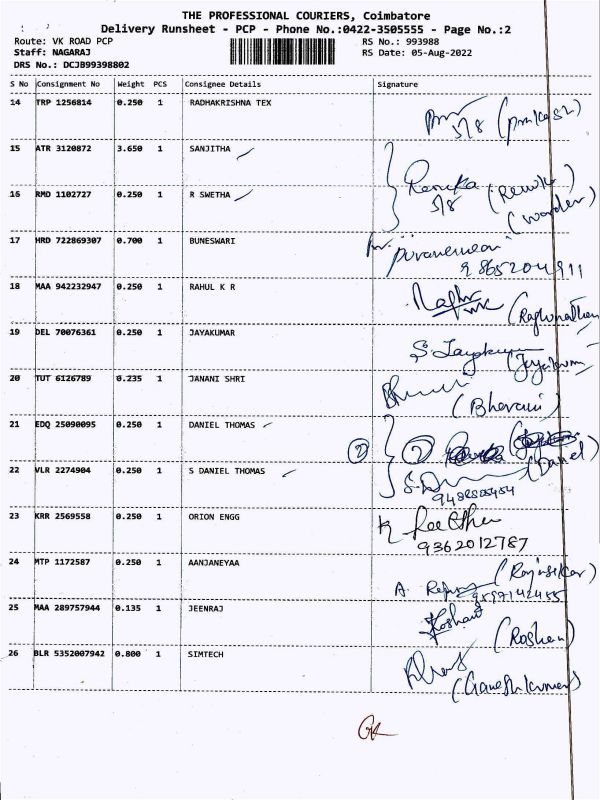 THE PROFESSIONAL COURIERS, Coimbatore
Delivery Runsheet - PCP - Phone No.:0422-3505555 - Page No.:2
Route: VK ROAD PCP RS No.: 993988
Staff: NAGARAJ RS Date: 05-Aug-2022
DRS No.: DCJB99398802
S No Consignment No Weight PCS Consignee Details Signature
14 TRP 1256814 0.250 1 RADHAKRISHNA TEX
5/8
15 ATR 3120872 3.650 1 SANJITHA
16 RMD 1102727 0.250 1 R SWETHA Renuka
5/8 (warden)
17 HRD 722869307 0.700 1 BUNESWARI
9865204911
18 MAA 942232947 0.250 1 RAHUL K R
(Raghunathan
19 DEL 70076361 0.250 1 JAYAKUMAR
S. Jayakum
20 TUT 6126789 0.235 1 JANANI SHRI
(Bhavani)
21 EDQ 25090095 0.250 1 DANIEL THOMAS
② ②
22 VLR 2274904 0.250 1 S DANIEL THOMAS (Daniel)
23 KRR 2569558 0.250 1 ORION ENGG
9362012787
24 MTP 1172587 0.250 1 AANJANEYAA
25 MAA 289757944 0.135 1 JEENRAJ
(Roshan)
26 BLR 5352007942 0.800 1 SIMTECH
(Ganeshkumar)